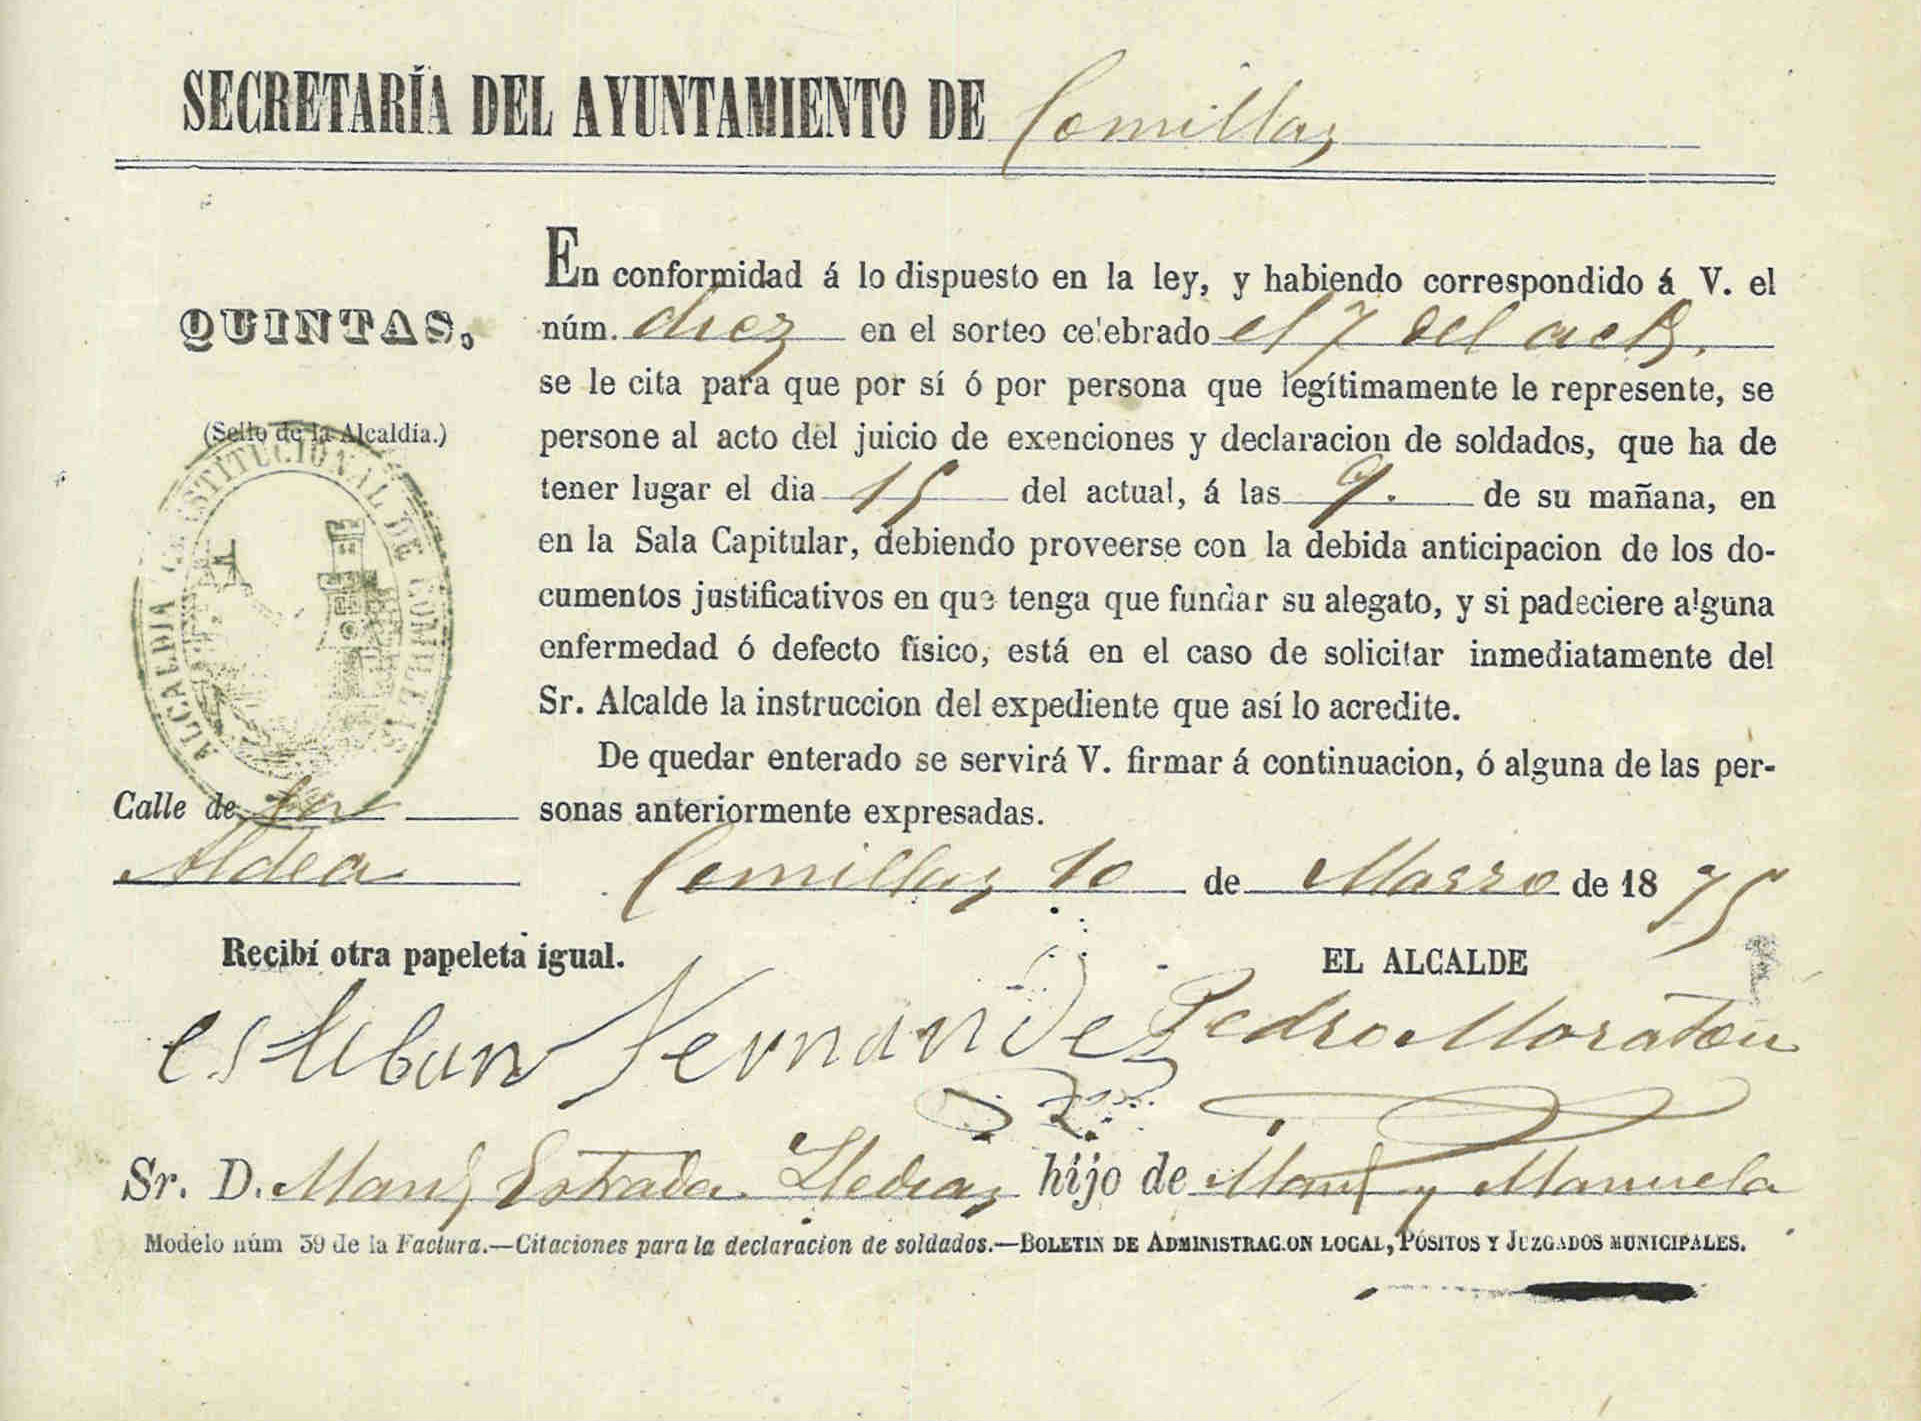 SECRETARÍA DEL AYUNTAMIENTO DE Comillas
QUINTAS.
(Sello de la Alcaldía.)
ALCALDIA CONSTITUCIONAL DE COMILLAS
En conformidad á lo dispuesto en la ley, y habiendo correspondido á V. el
núm. diez en el sorteo celebrado el 7 del act.
se le cita para que por sí ó por persona que legítimamente le represente, se
persone al acto del juicio de exenciones y declaracion de soldados, que ha de
tener lugar el dia 15 del actual, á las 9. de su mañana, en
en la Sala Capitular, debiendo proveerse con la debida anticipacion de los do-
cumentos justificativos en que tenga que fundar su alegato, y si padeciere alguna
enfermedad ó defecto físico, está en el caso de solicitar inmediatamente del
Sr. Alcalde la instruccion del expediente que así lo acredite.
De quedar enterado se servirá V. firmar á continuacion, ó alguna de las per-
sonas anteriormente expresadas.
Calle de
Aldea
Comillas 10 de Marzo de 1875
Recibí otra papeleta igual.
EL ALCALDE
esteban Fernandez
Pedro Moraton
Sr. D. Manl Estrada hijo de Manl y Manuela
Modelo núm 39 de la Factura.—Citaciones para la declaracion de soldados.—BOLETIN DE ADMINISTRACION LOCAL, PÓSITOS Y JUZGADOS MUNICIPALES.